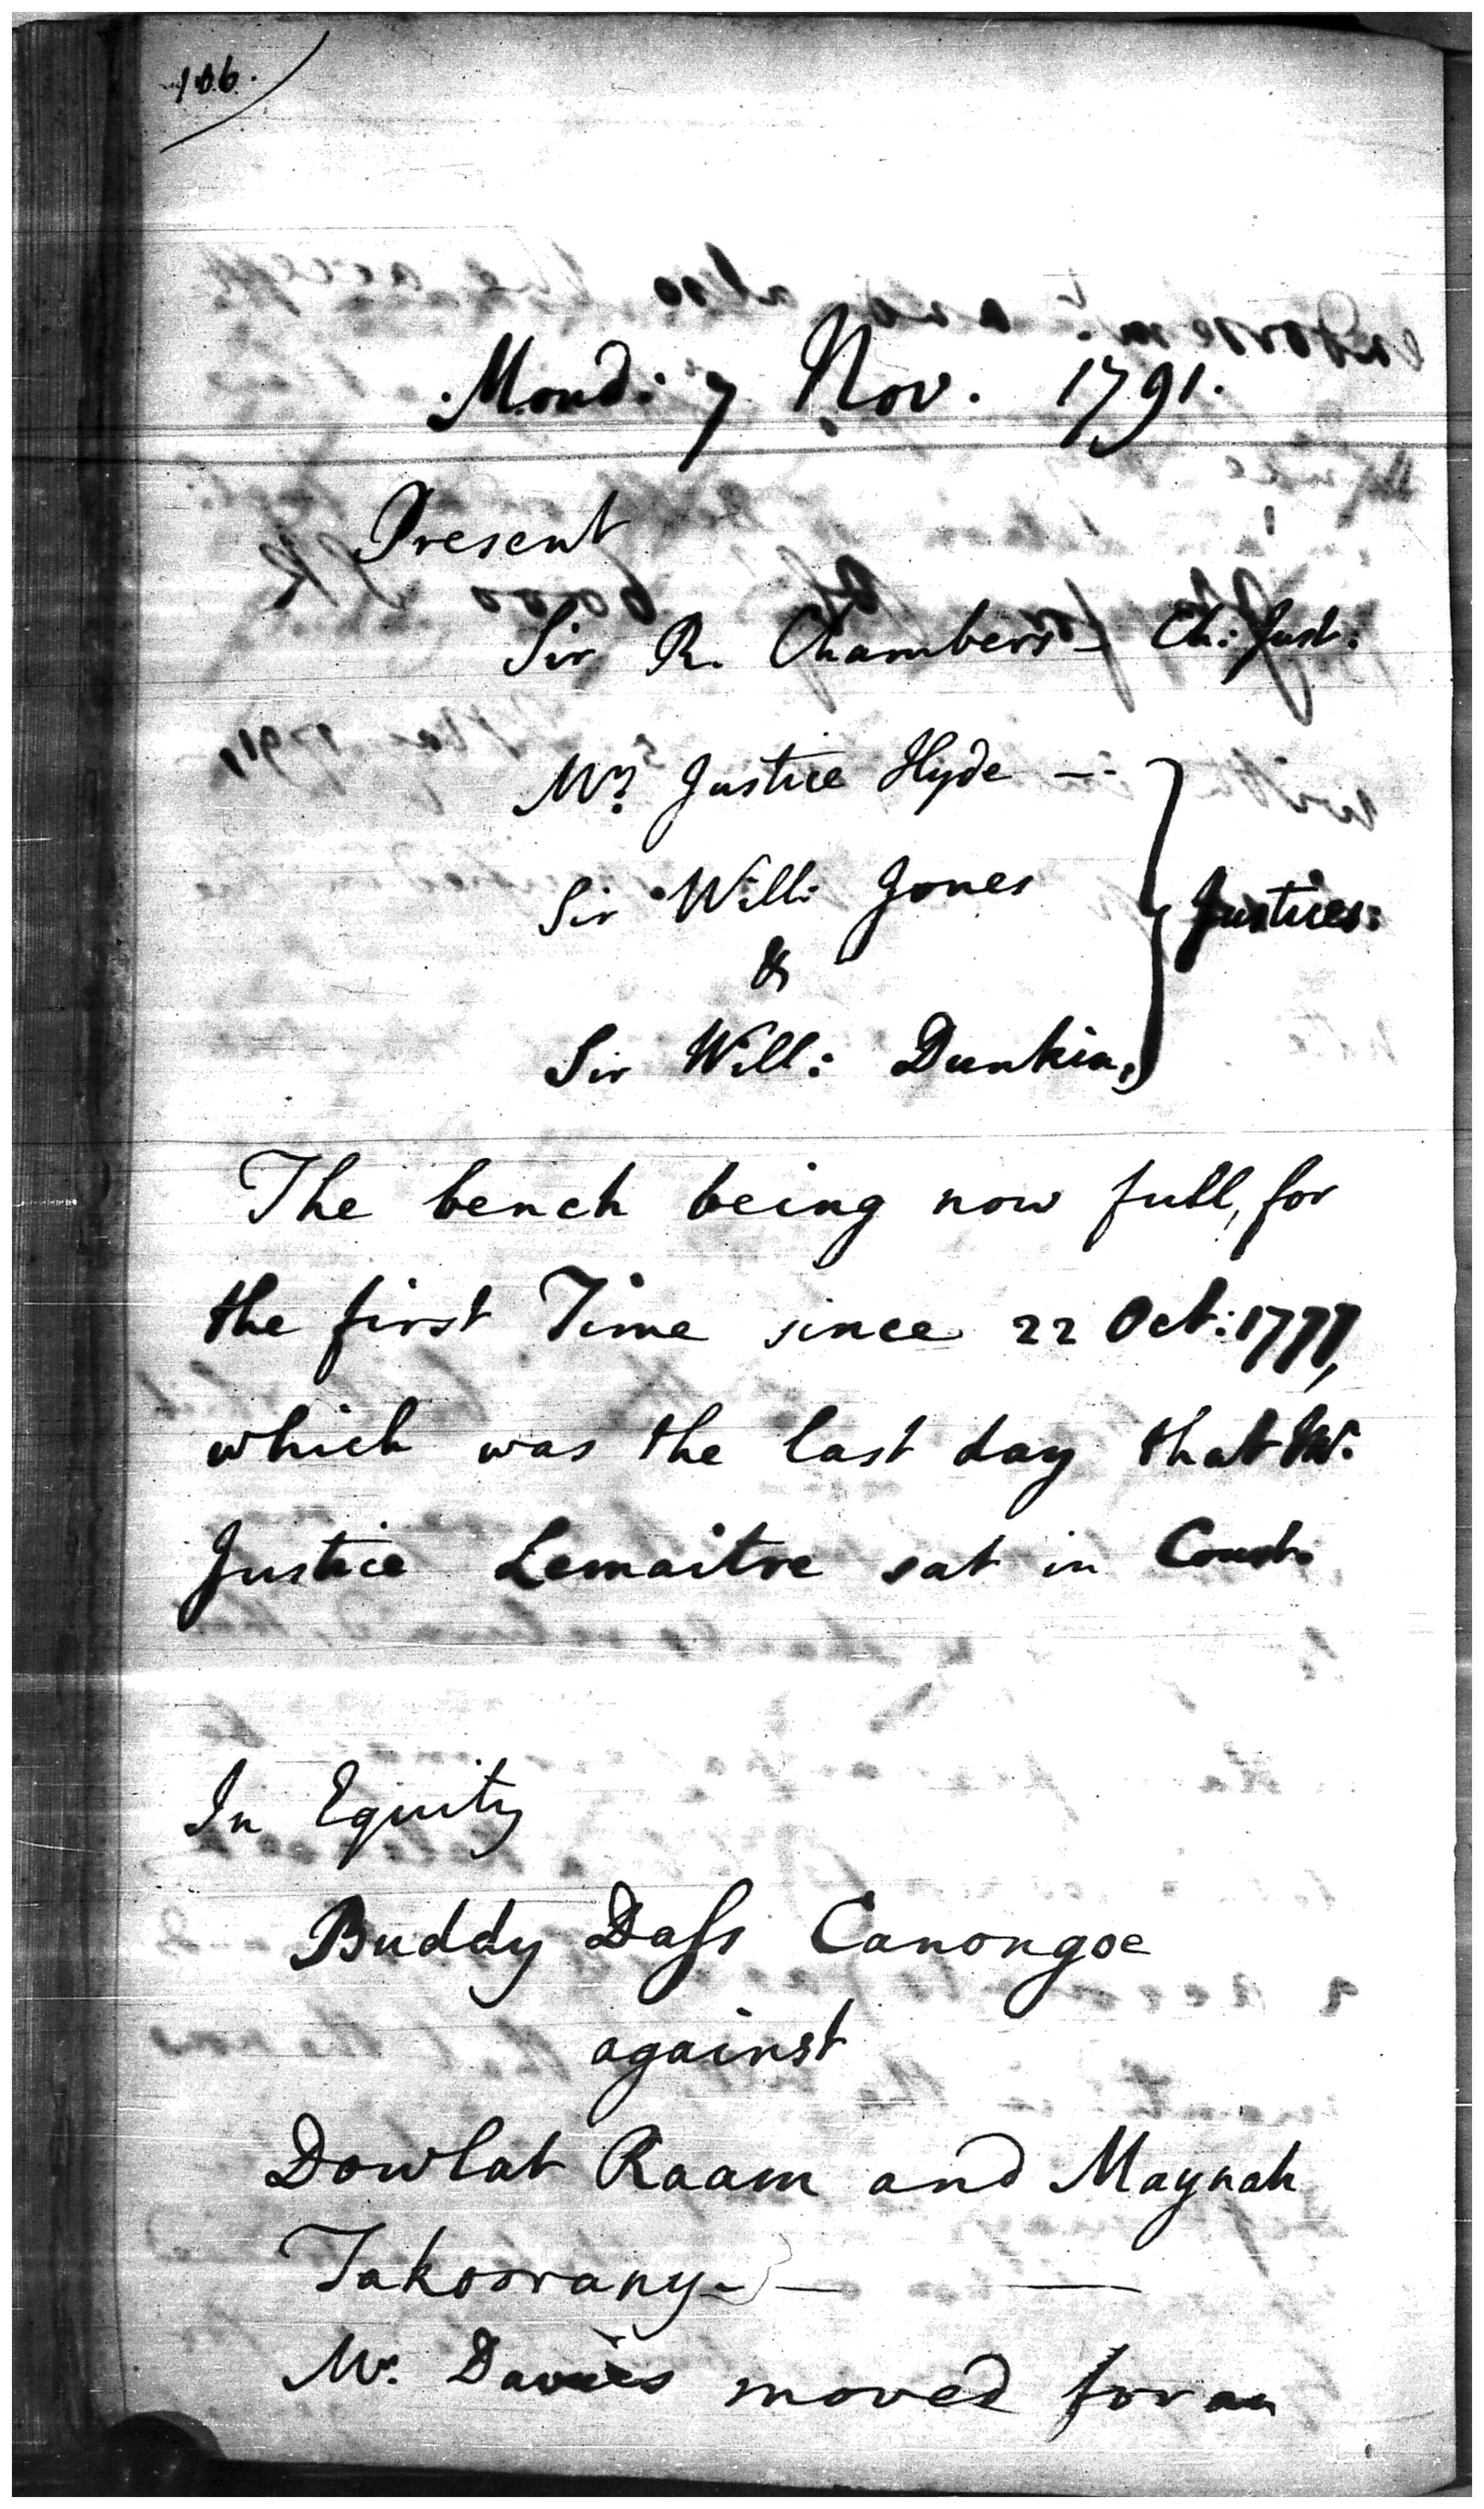 106.
Mond: 7 Nov. 1791.
Present
Sir R. Chambers – Ch: Just:
Mr. Justice Hyde –
Sir Will: Jones
Justices:
&
Sir Will: Dunkin,
The bench being now full, for
the first Time since 22 Oct: 1777,
which was the last day that Mr.
Justice Lemaitre sat in Court.
In Equity
Buddy Dass Canongoe
against
Dowlat Raam and Maynah
Takoorany – —
Mr. Davies moved for an